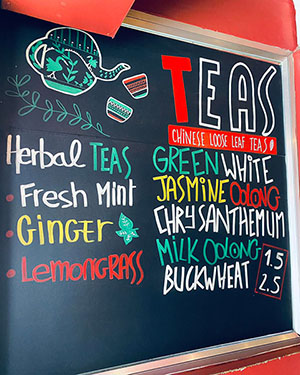 TEAS
CHINESE LOOSE LEAF TEAS
Herbal TEAS
• Fresh Mint
• GINGER
• LEMONGRASS
GREEN WHITE
JASMINE OOLONG
CHRYSANTHEMUM
MILK OOLONG
BUCKWHEAT
1.5
2.5